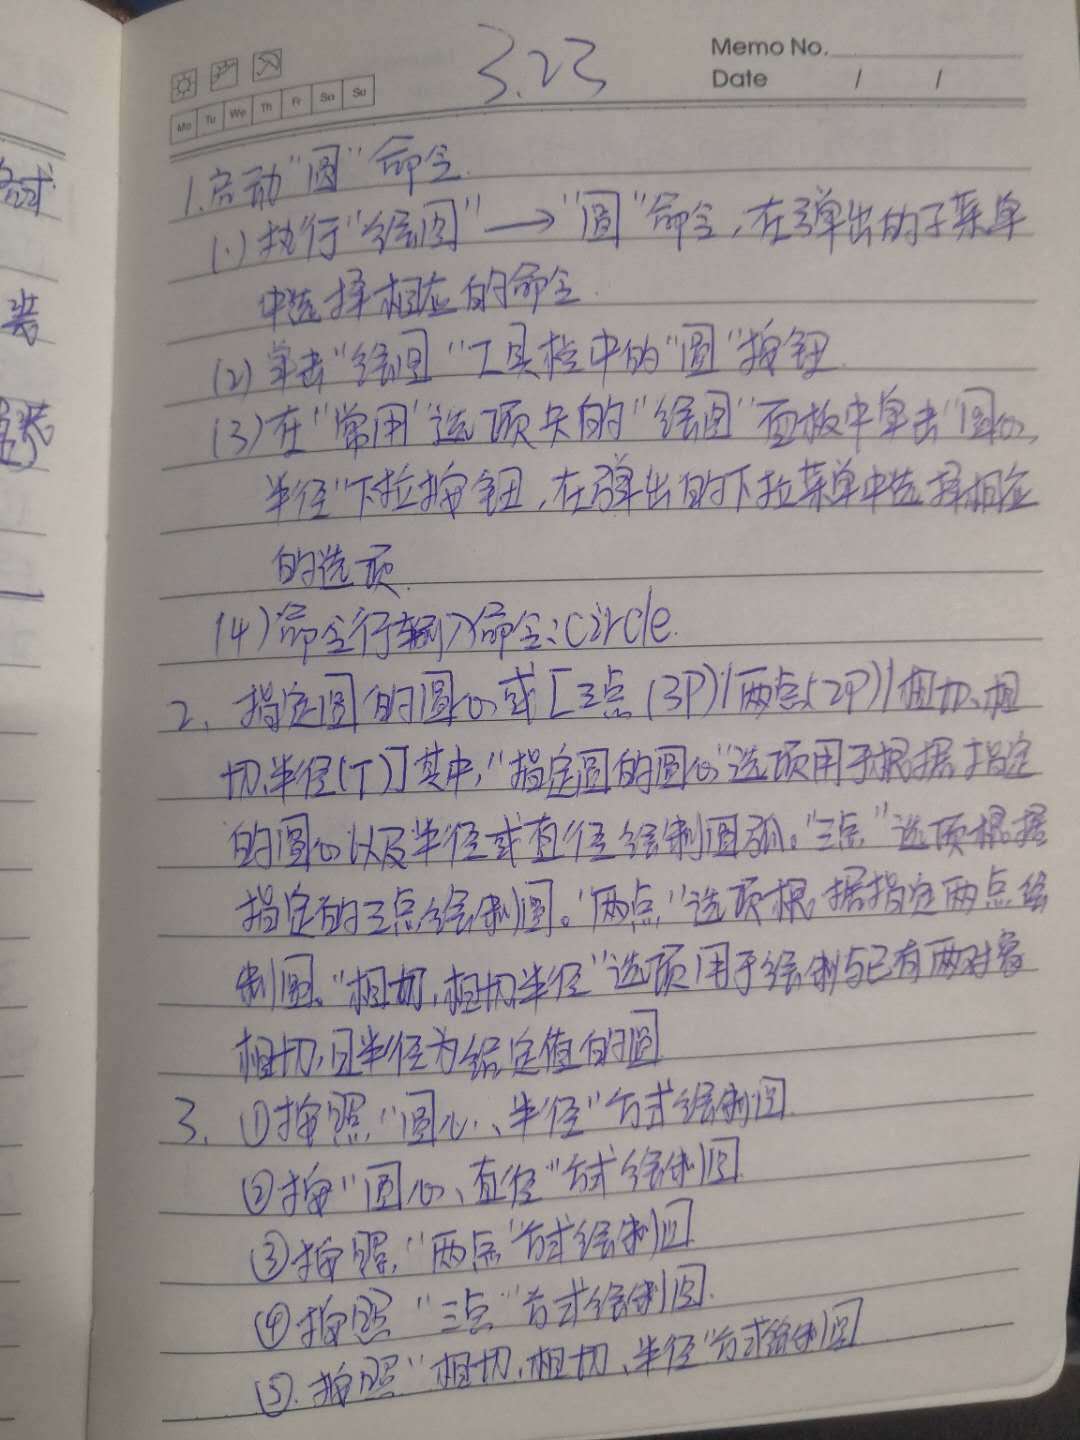 3.23
Memo No.
Date / /
Mo Tu We Th Fr Sa Su
1.启动"圆"命令.
(1)执行"绘图"→"圆"命令,在弹出的子菜单
中选择相应的命令.
(2)单击"绘图"工具栏中的"圆"按钮.
(3)在"常用"选项夹的"绘图"面板中单击"圆心,
半径"下拉按钮,在弹出的下拉菜单中选择相应
的选项.
(4)命令行输入命令:circle.
2、指定圆的圆心或[三点(3P)/两点(2P)/相切、相
切、半径(T)]其中,"指定圆的圆心"选项用于根据指定
的圆心以及半径或直径绘制圆弧。"三点"选项根据
指定的三点绘制圆。"两点"选项根据指定两点绘
制圆。"相切,相切半径"选项用于绘制与已有两对象
相切,且半径为给定值的圆
3、①按照"圆心、半径"方式绘制圆.
②按"圆心、直径"方式绘制圆.
③按照,"两点"方式绘制圆
④按照"三点"方式绘制圆.
⑤.按照"相切,相切、半径"方式绘制圆